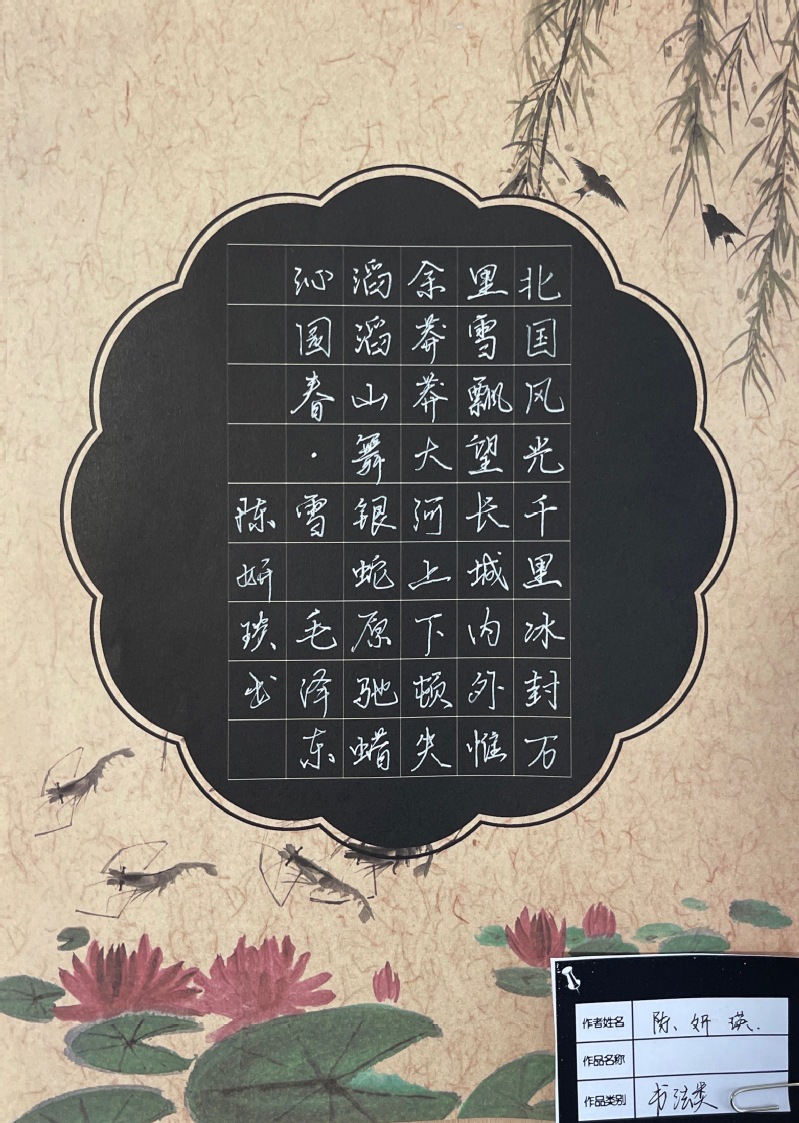 北国风光千里冰封万
里雪飘望长城内外惟
余莽莽大河上下顿失
滔滔山舞银蛇原驰蜡
沁园春·雪 毛泽东
陈妍瑛书
作者姓名 陈妍瑛.
作品名称
作品类别 书法类